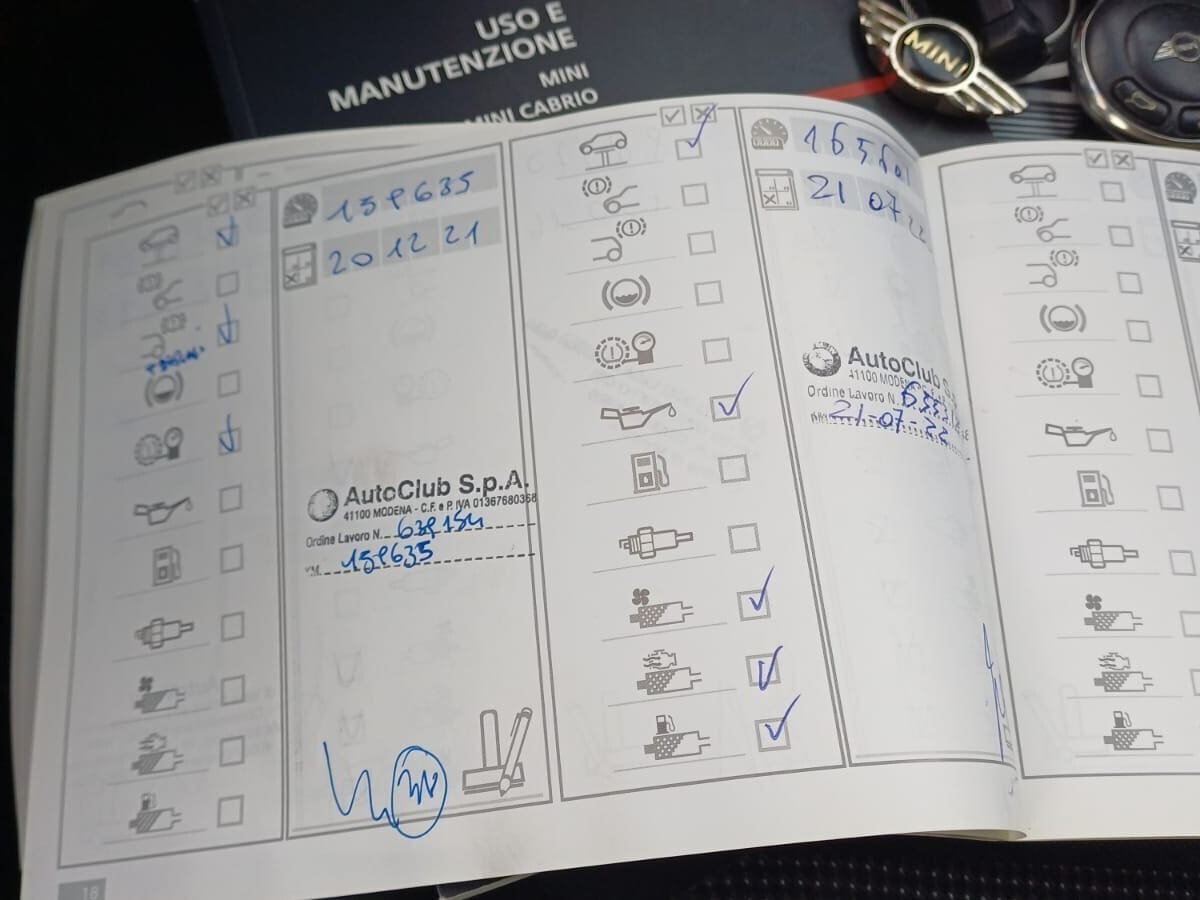 USO E
MANUTENZIONE
MINI
MINI CABRIO
MINI
159635
20 12 21
AutoClub S.p.A.
41100 MODENA - C.F. e P. IVA 01367680368
Ordine Lavoro N.
159635
18
165601
21 07 22
AutoClub S
41100 MODENA
Ordine Lavoro N.
21-07-22